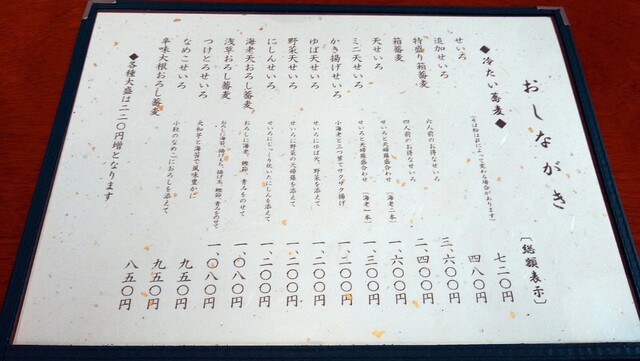 おしながき
〔総額表示〕
◆冷たい蕎麦◆
(そば粉は日によって変わる場合があります)
せいろ 七二〇円
追加せいろ 四八〇円
特盛り箱蕎麦 六人前のお得なせいろ 三、六〇〇円
箱蕎麦 四人前のお得なせいろ 二、四〇〇円
天せいろ せいろと天婦羅盛合わせ(海老二本) 一、六〇〇円
ミニ天せいろ せいろと天婦羅盛合わせ(海老一本) 一、三〇〇円
かき揚げせいろ 小海老と三つ葉でサクサク揚げ 一、二〇〇円
ゆば天せいろ せいろにゆば天、野菜を添えて 一、二〇〇円
野菜天せいろ せいろに野菜の天婦羅を添えて 一、二〇〇円
にしんせいろ せいろにじっくり炊いたにしんを添えて 一、二〇〇円
海老天おろし蕎麦 おろしに海老、鰹節、青みをのせて 一、〇八〇円
浅草おろし蕎麦 おろしに海苔、揚げ玉、鰹節、青みをのせて 一、〇八〇円
つけとろせいろ 大和芋と海苔で風味豊かに 九五〇円
なめこせいろ 小粒のなめこにおろしを添えて 九五〇円
辛味大根おろし蕎麦 八五〇円
◆各種大盛は二二〇円増となります